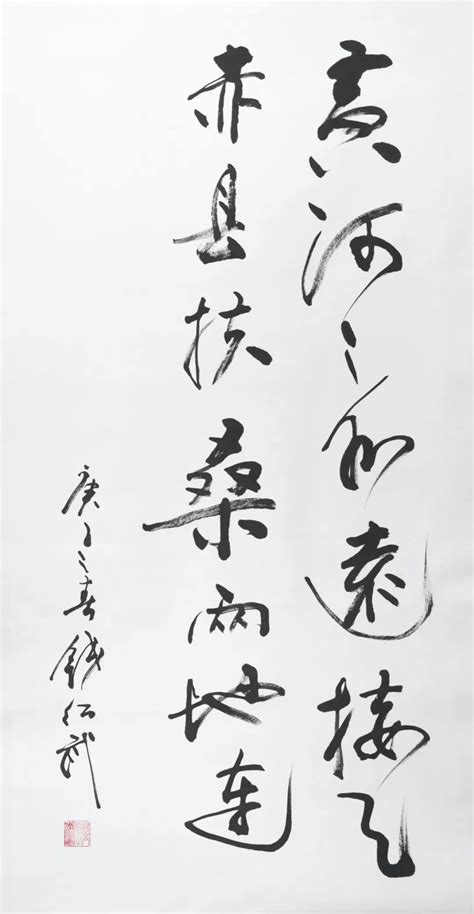 黄河之水遠接天
赤县扶桑两地连
庚子之春钱武